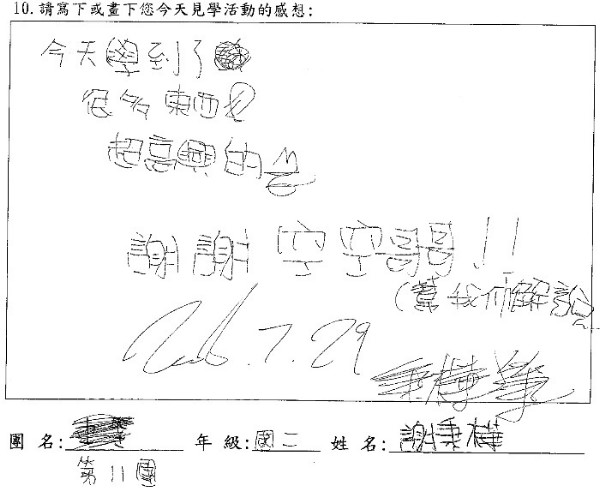 10.請寫下或畫下您今天見學活動的感想:
今天學到了
很多東西
超高興的
謝謝空空哥哥!!
(幫我們解說)
7.29
團 名: 年 級:國二 姓 名:謝秉樺
第11團